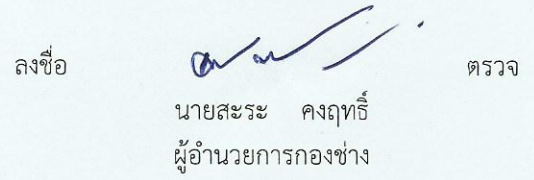 ลงชื่อ ตรวจ
นายสะระ คงฤทธิ์
ผู้อำนวยการกองช่าง